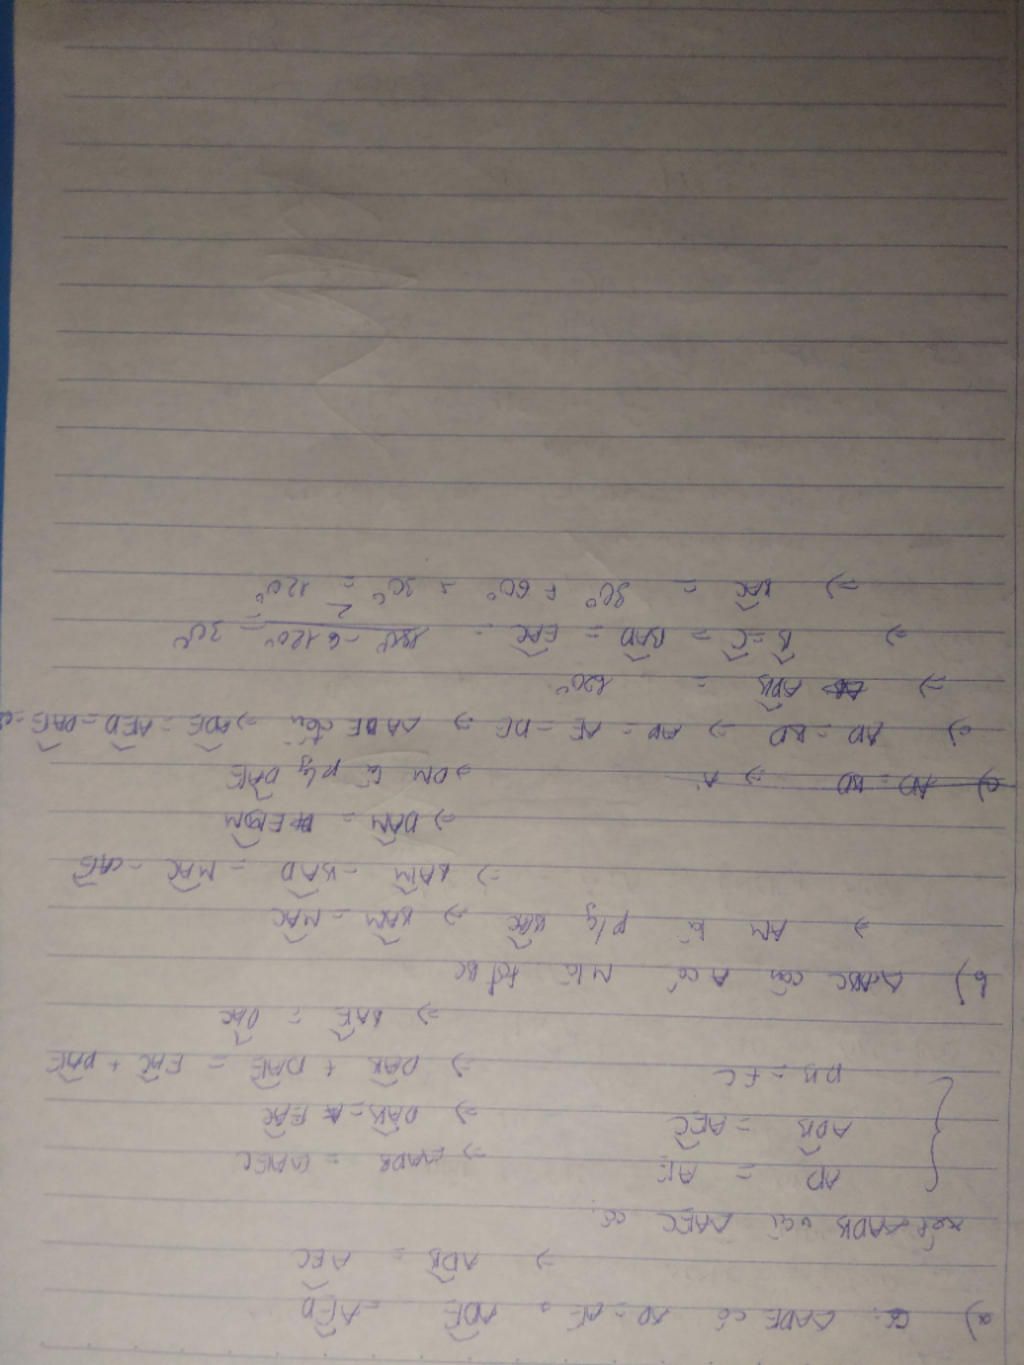 a) ΔADE có AD = AE ⇒ ∠ADE = ∠AED
⇒ ∠ADB = ∠AEC
xét ΔADB với ΔAEC có:
AD = AE
∠ADB = ∠AEC
DB = EC
⇒ ΔADB = ΔAEC
⇒ ∠DAB = ∠EAC
⇒ ∠DAB + ∠DAE = ∠EAC + ∠DAE
⇒ ∠BAE = ∠DAC
b) ΔABC cân A có M là tđ BC
⇒ AM là p/g ∠BAC ⇒ ∠BAM = ∠MAC
⇒ ∠BAM - ∠BAD = ∠MAC - ∠CAE
⇒ ∠DAM =
⇒ DM là p/g ∠DAE
c) AD = BD ⇒
c) AD = BD ⇒ AD = AE = DE ⇒ ΔADE đều ⇒ ∠ADE = ∠AED = ∠DAE =
⇒ ∠ADB = 120°
⇒ ∠B = ∠C = ∠BAD = ∠EAC = (180° - 120°)/2 = 30°
⇒ ∠BAC = 30° + 60° + 30° = 120°